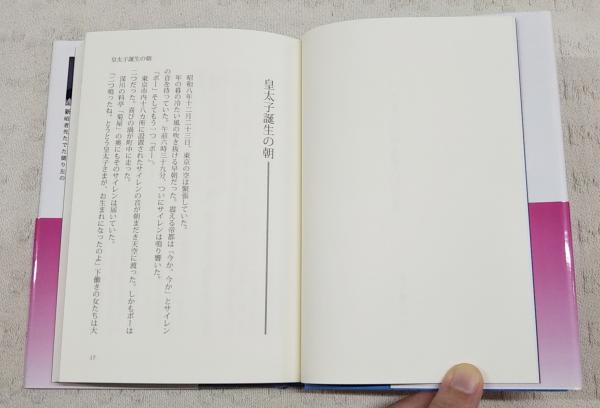 皇太子誕生の朝
皇太子誕生の朝
昭和八年十二月二十三日、東京の空は緊張していた。
年の暮の冷たい風の吹き抜ける早朝だった。震える帝都は「今か、今か」とサイレン
の音を待っていた。午前六時三十九分、ついにサイレンは鳴り響いた。
「ボー」そしてもう一つ「ボー」。
東京市内十八カ所に設置されたサイレンの音が朝まだき天空に渡った。しかもボーは
二つだった。喜びの渦が町中に走った。
深川の料亭「菊屋」の奥にもそのサイレンは届いていた。
「二つ鳴ったね。とうとう皇太子さまが、お生まれになったのよ」下働きの女たちは大
17